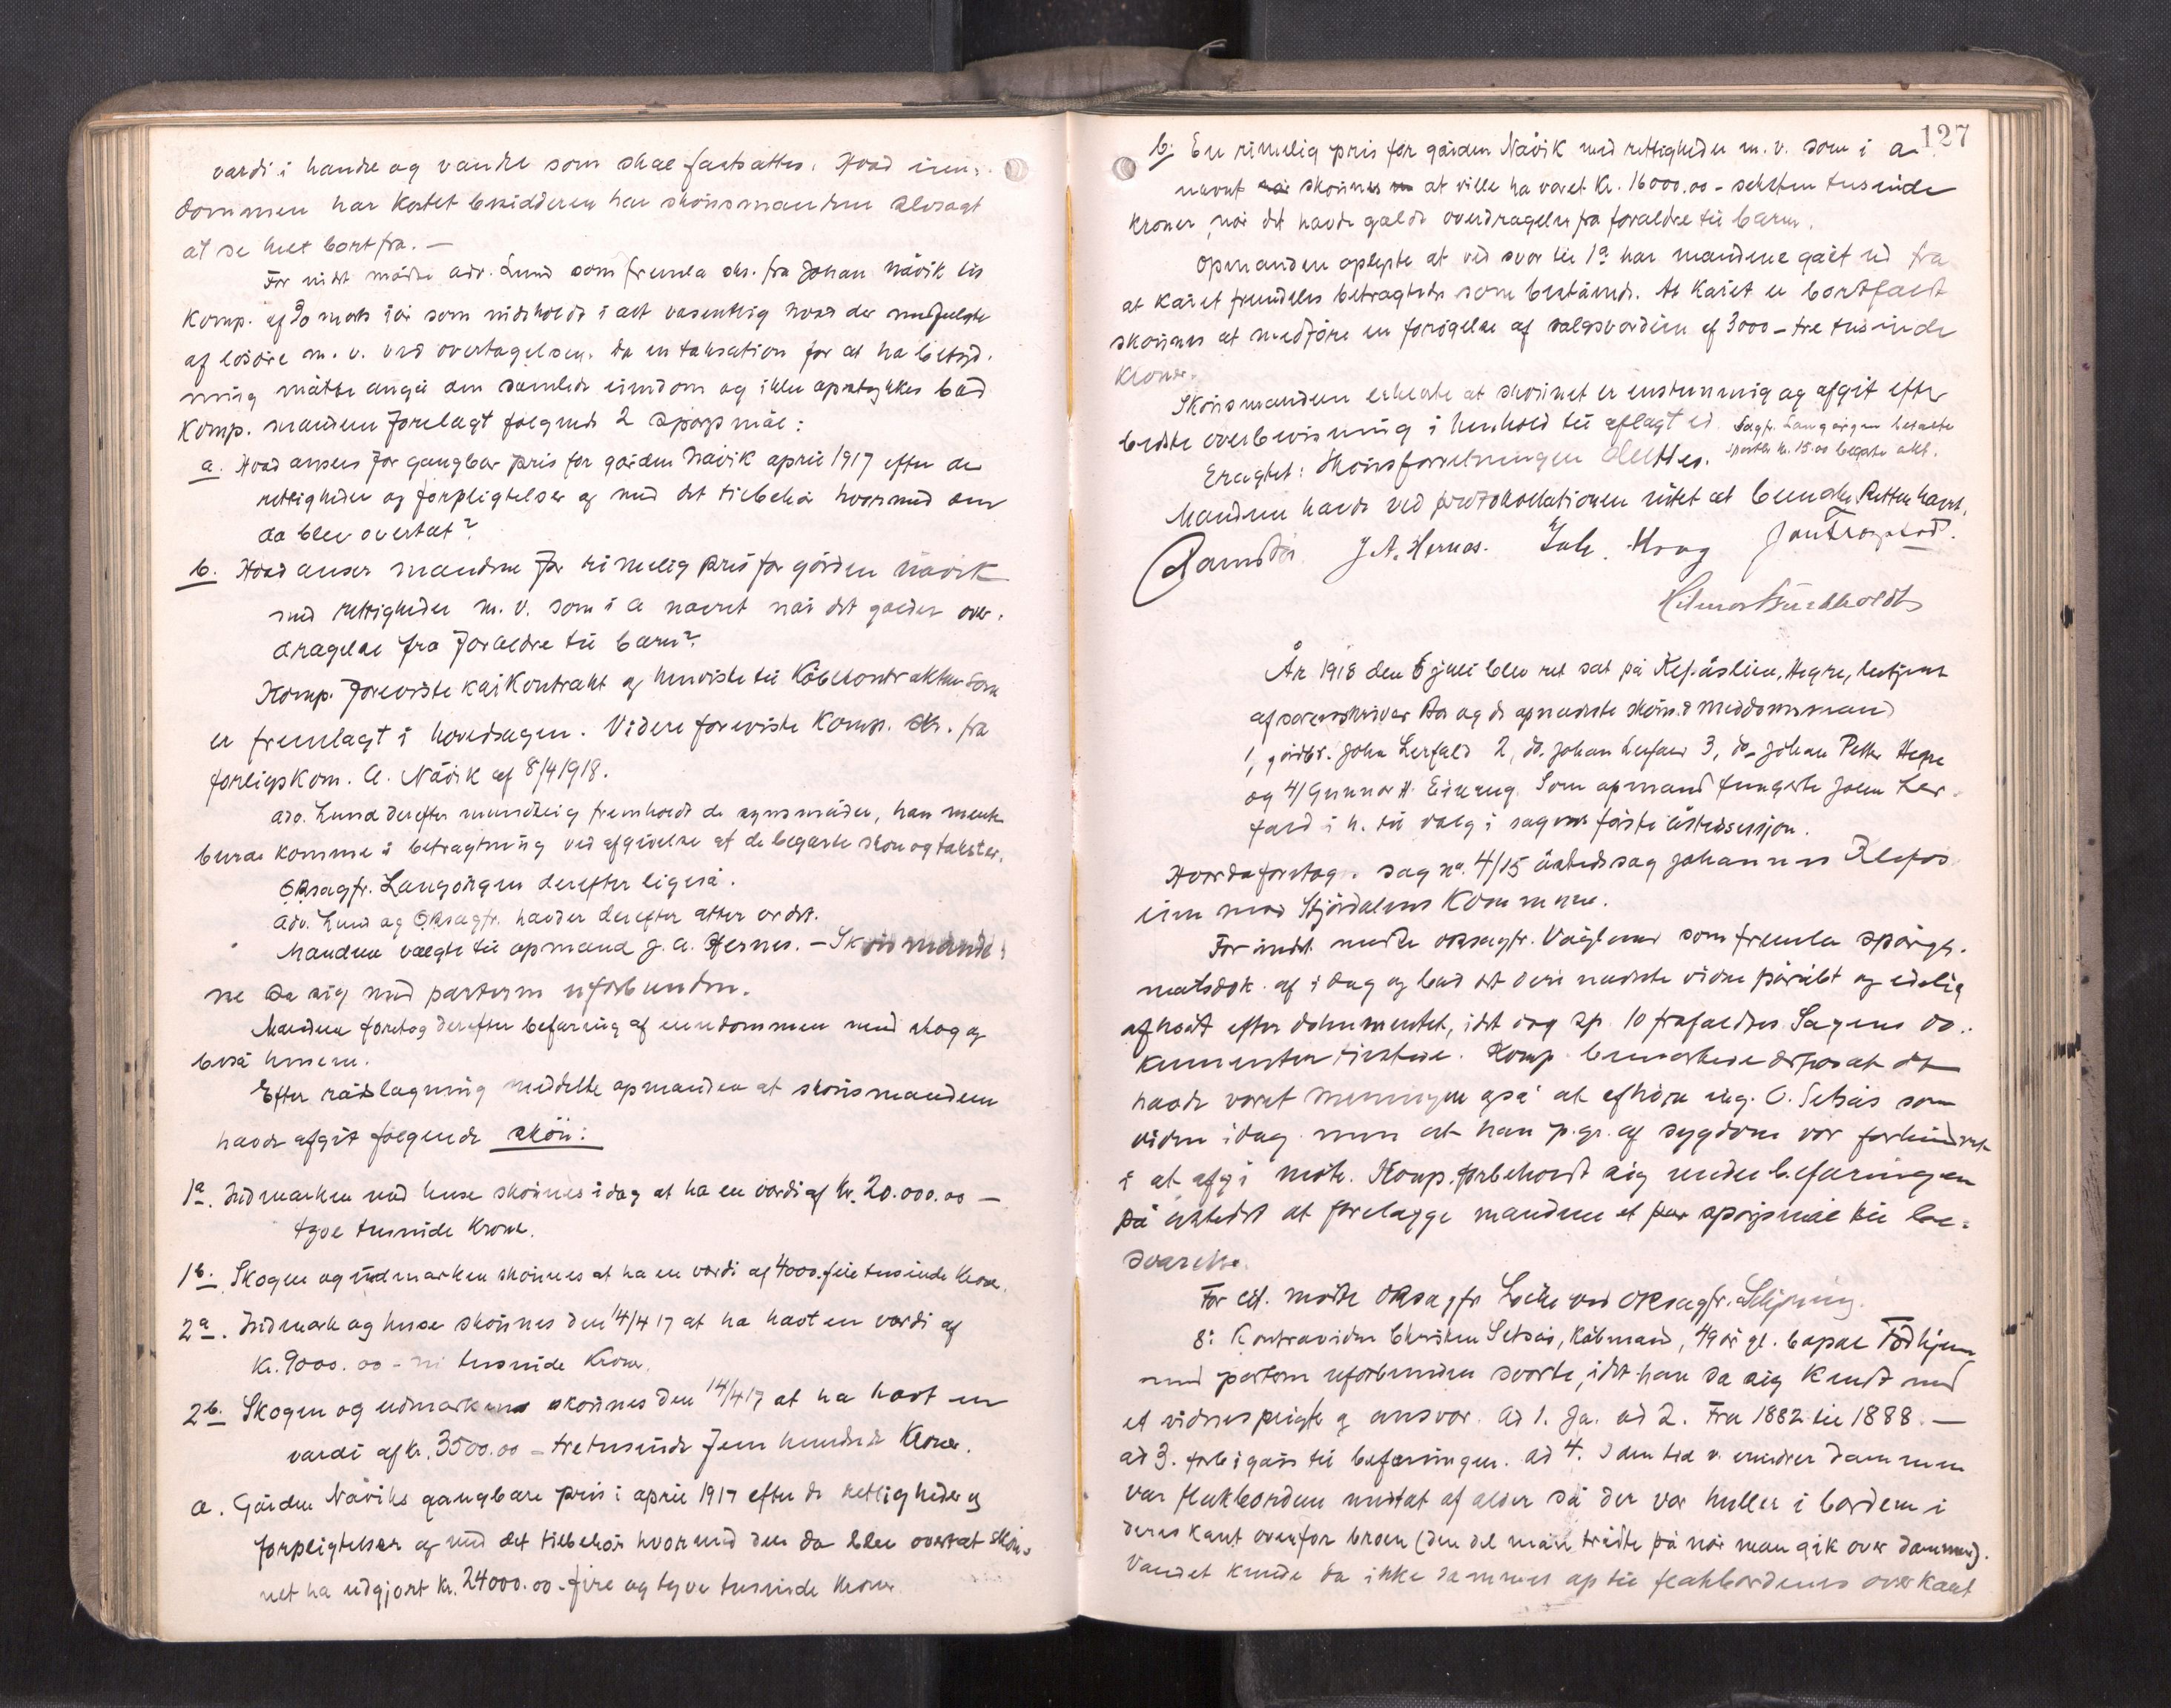 værdi i handel og vandel som skal fastsættes. Hvad eien-
dommen har kostet besidderen har skønsmændene selvsagt
at se helt bort fra. —
For nidst mødte adv. Lund som fremla skr. fra Johan Nåvik til
Komp. af 30 mars iår som indeholdt i alt væsentlig hvad der medfulgte
af løsøre m. v. ved overtagelsen. Da en taksation for at ha betyd-
ning måtte angå den samlede eiendom og ikke opstykkes bad
Komp. mændene forelagt følgende 2 spørgsmål:
a. Hvad ansees for gangbar pris for gården Nåvik april 1917 efter de
rettigheder og forpligtelser og med det tilbehør hvormed den
da blev overtat?
b. Hvad anser mændene for rimelig pris for gården Nåvik
med rettigheder m. v. som i a nævnt når det gjelder over-
dragelse fra forældre til barn?
Komp. foreviste kaikontrakt og henviste til Købekontrakten som
er fremlagt i hovedsagen. Videre foreviste Komp. skr. fra
forligskom. A. Nåvik af 8/4 1918.
Adv. Lund derefter mundtlig fremholdt de synsmåder, han mente
burde komme i betragtning ved afgivelse af de begærte skøn og takster.
ORsagfr. Langørgen derefter ligeså.
Adv. Lund og ORsagfr. havder derefter atter ordet.
Mændene valgte til opmand J. A. Hernes. — Skønsmænde-
ne sa sig med parterne uforbundne.
Mændene foretog derefter befaring af eiendommen med skog og
beså husene.
Efter rådslagning meddelte opmanden at skønsmændene
havde afgit følgende skøn:
1a. Indmarken med huse skønnes idag at ha en værdi af kr. 20.000.00 —
tyve tusinde Kroner.
1b. Skogen og udmarken skønnes at ha en værdi af 4000. fire tusinde Kroner.
2a. Indmark og huse skønnes den 14/4 17 at ha havt en værdi af
Kr. 9000.00 - ni tusinde Kroner.
2b. Skogen og udmarken skønnes den 14/4 17 at ha havt en
værdi af kr. 3500.00 - tretusinde fem hundrede Kroner.
a. Gården Nåviks gangbare pris i april 1917 efter de rettigheder og
forpligtelser og med det tilbehør hvormed den da blev overtat skøn-
net ha udgjort kr. 24000.00 - fire og tyve tusinde Kroner.
127
b. En rimelig pris for gården Nåvik med rettigheder m. v. som i a
nævnt skønnes at ville ha været kr. 16000.00 - seksten tusinde
Kroner, når det havde gjældt overdragelse fra forældre til barn.
Opmanden oplyste at ved svar til 1a har mændene gået ud fra
at kaiet fremdeles betragtedes som bestående. At kaiet er bortfaldt
skønnes at medføre en forøgelse af salgsværdien af 3000 - tre tusinde
Kroner.
Skønsmændene erklærte at skønnet er enstemmig og afgit efter
bedste overbevisning i henhold til aflagt ed. Sagfr. Langørgen betalte
sportler kr. 15.00 begærte akt.
Eragtet: Skønsforretningen sluttes.
Mændene havde ved protokollationen intet at bemerke. Retten hævet.
J. A. Hernes. Joh. Haug
År 1918 den 6 juli blev ret sat på Klefåslien, Hegre, betjent
af sorenskriver Bor og de opnævnte skøns & meddomsmænd
1, gårdbr. John Lerfald 2, do. Johan Lerfald 3, do. Johan Petter Hegre
og 4/ Gunnar H. Einang. Som opmand fungerte John Ler-
fald i h. til valg i sagens første åstedssesjon.
Hvorda foretog. sag no. 4/15 åstedssag Johannes Klefås-
lien mod Stjørdalens Kommune.
For indst. mødte ORsagfr. Vaglund som fremla spørgs-
målsdok. af idag og bad det deri nævnte vidne påråbt og edelig
afhørt efter dokumentet, idet dog sp. 10 frafaldtes. Sagens do-
kumenter tilstede. Komp. bemærkede derhos at det
havde været meningen også at afhøre ing. O. Setsås som
vidne idag men at han p. gr. af sygdom var forhindret
i at afgi møte. Komp. forbeholdt sig under befaringen
på åstedet at forelægge mændene et par spørgsmål til be-
svarelse.
For cit. mødte ORsagfr. Løchen ved ORsagfr.
8: Kontravidne Christian Setsås, Købmand, 49 år gl. bopæl Fødhjem
med parterne uforbunden svorte, idet han sa sig kendt med
et vidnes pligter og ansvar. Ad 1. Ja. ad 2. Fra 1882 til 1888. —
ad 3. forbigåes til befaringen. Ad 4. I den tid v. erindrer dammen
var flakbordene medtat af alder så der var huller i bordene i
deres kant ovenfor broen (den del man trådte på når man gik over dammen).
Vandet kunde da ikke dæmmes op til flakbordenes overkant